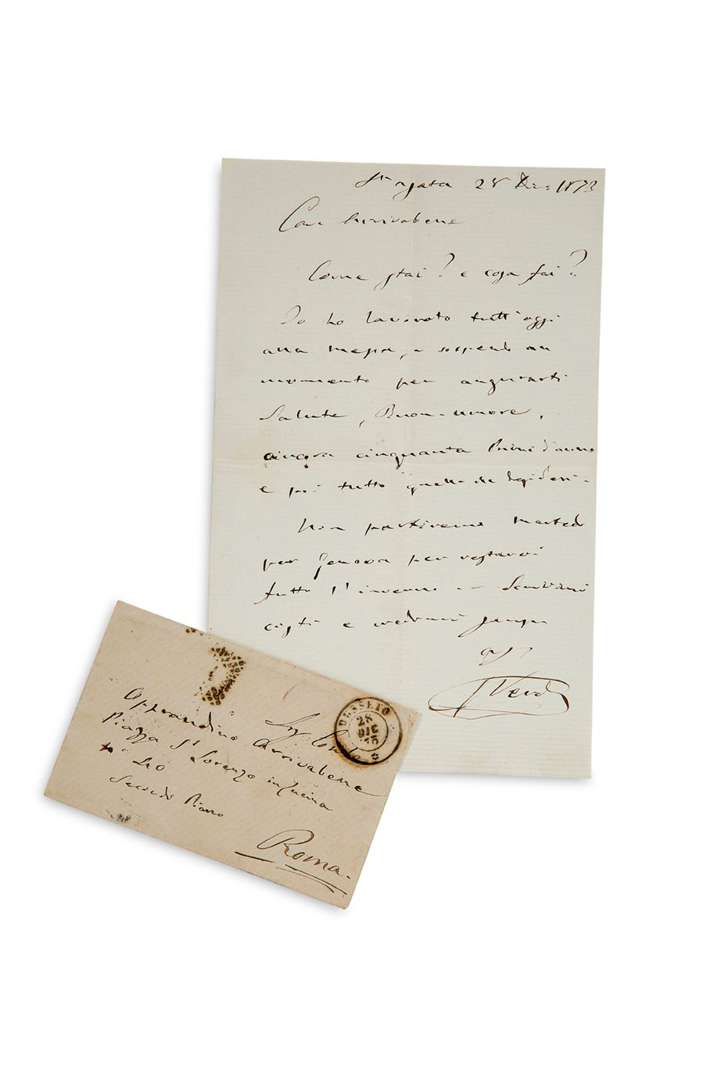 St Agata 28 Dic 1873
Car Arrivabene
Come stai? e cosa fai?
Io ho lavorato tutt'oggi
alla messa, e sospendo un
momento per augurarti
Salute, Buon-umore,
ancora cinquanta Primi d'anno
e poi tutto quello che desideri.
Noi partiremo martedì
per Genova per restarvi
tutto l'inverno — Scrivimi
colà e credimi sempre
aff
GVerdi
Sig Conte
Opprandino Arrivabene
Piazza St Lorenzo in Lucina
Secondo Piano
Roma.
BUSSETO
28
DIC
73